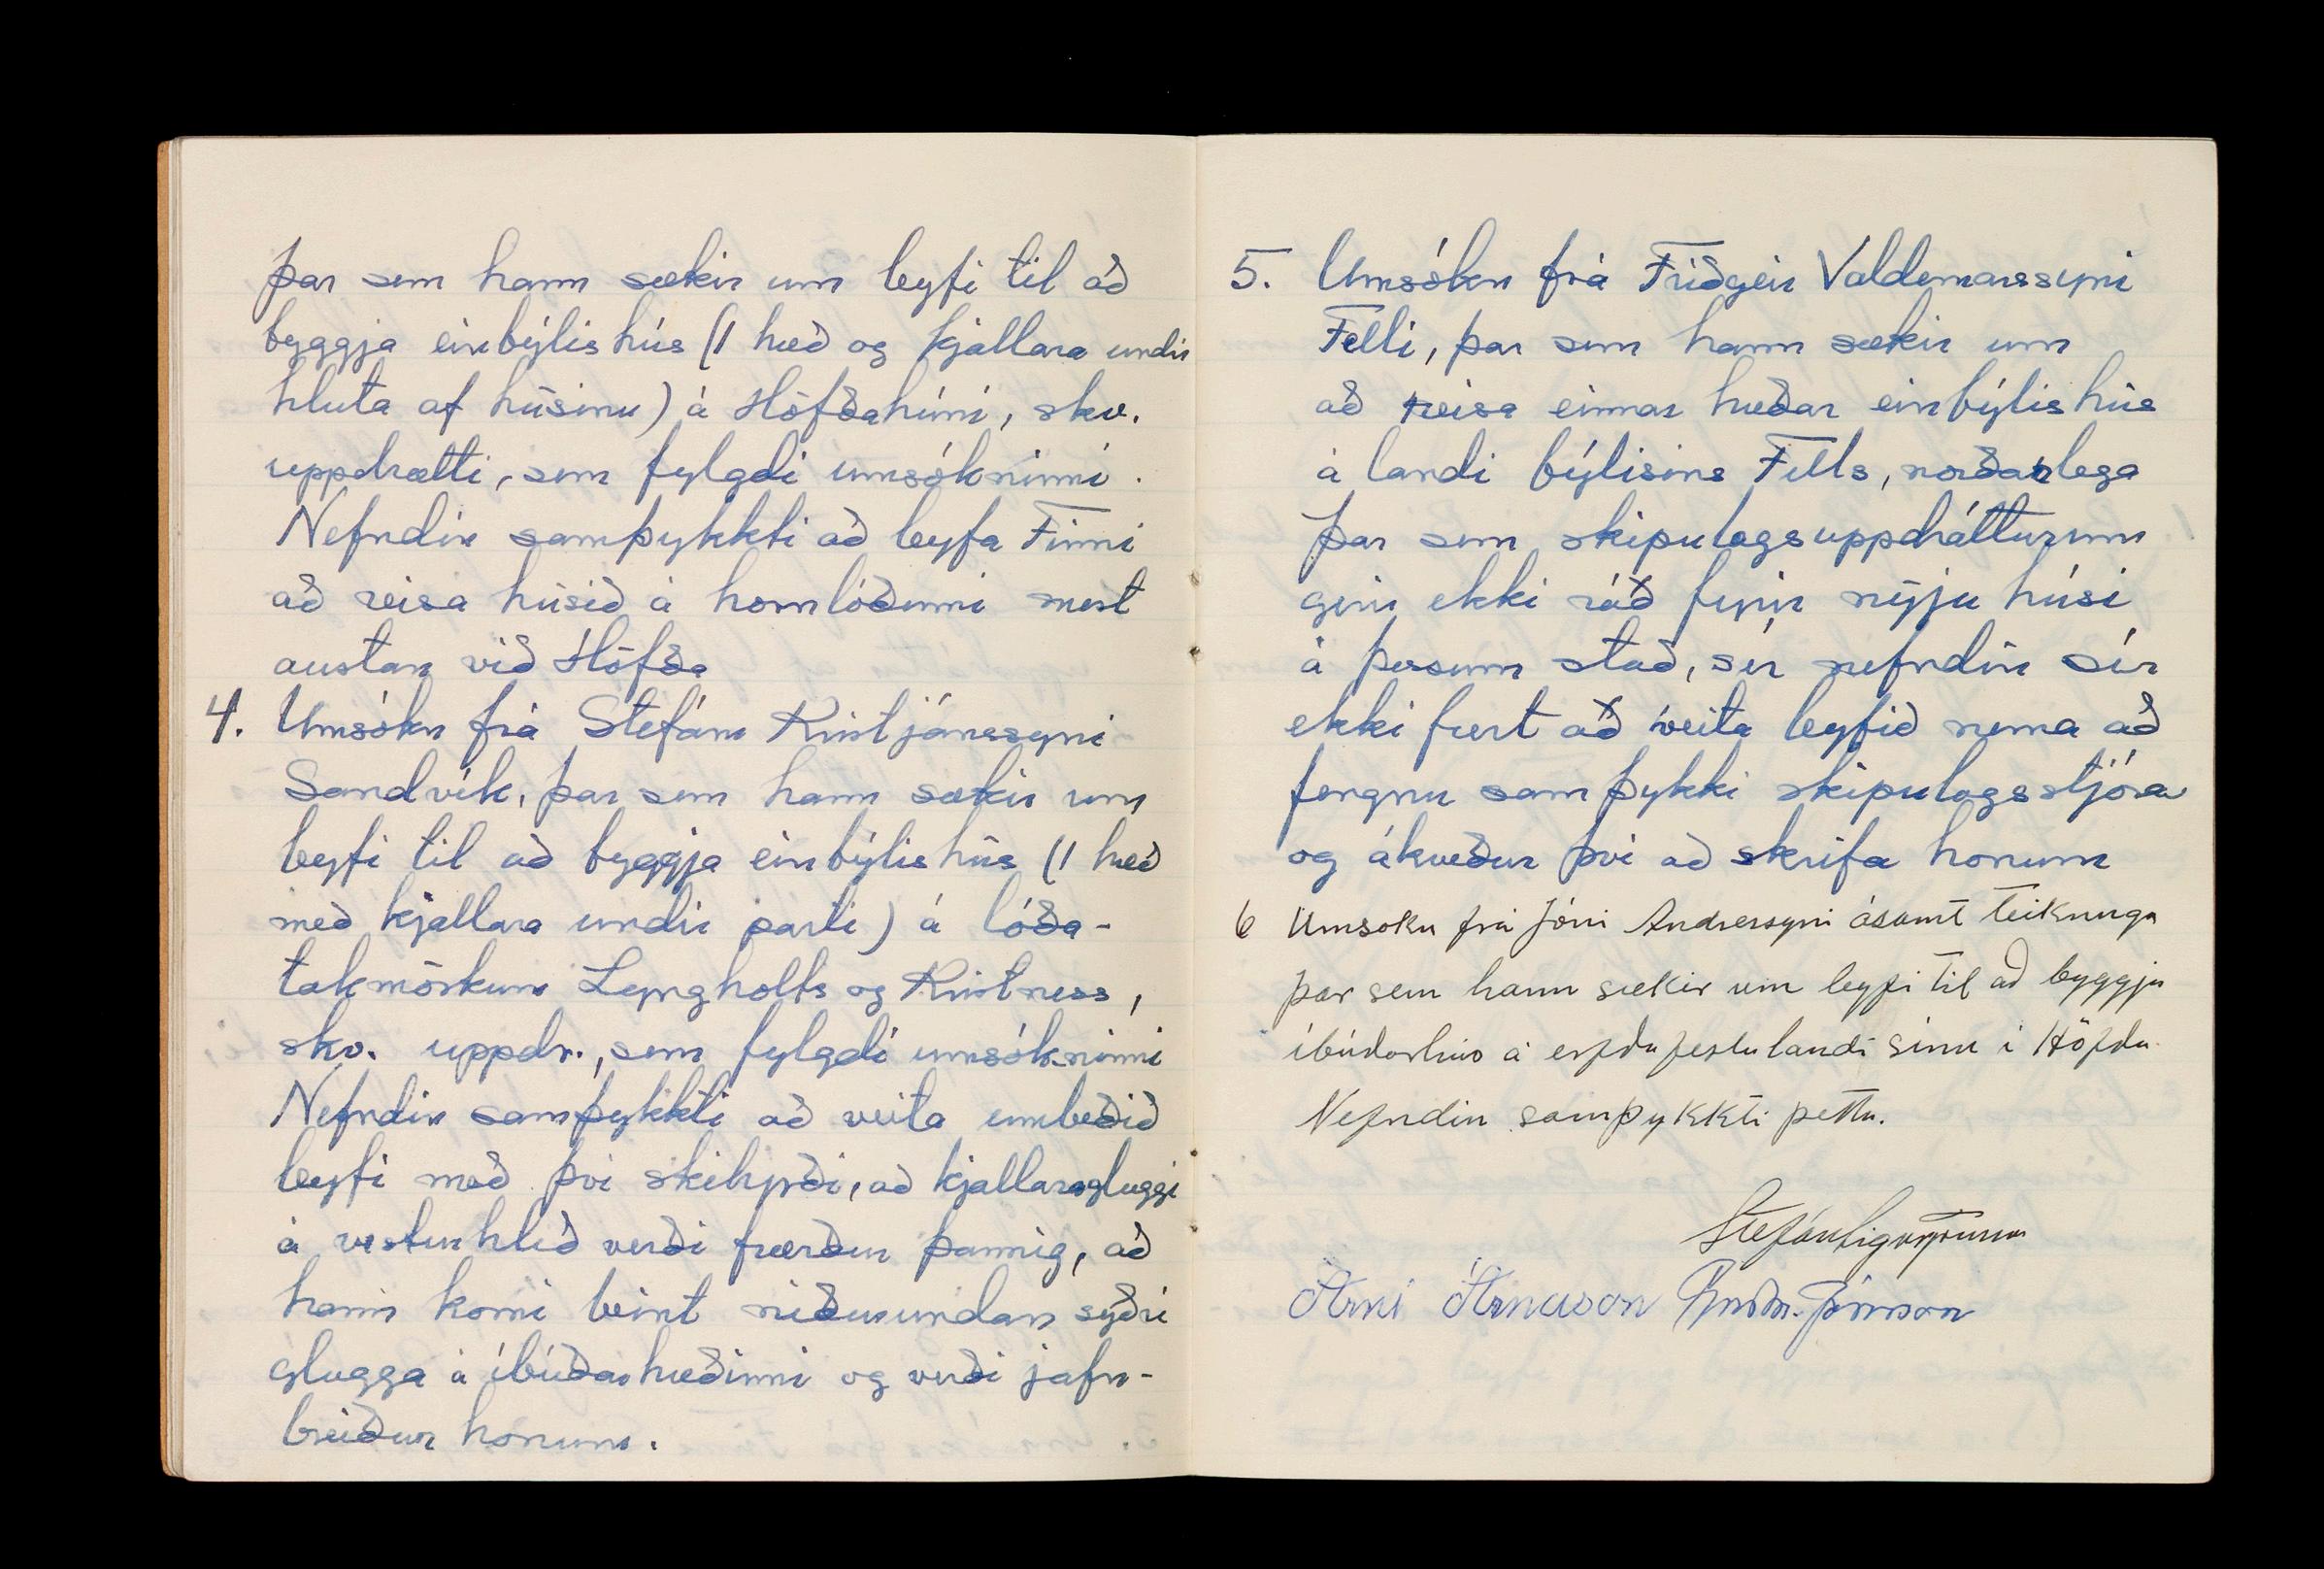 þar sem hann sækir um leyfi til að
byggja einbýlishús (1 hæð og kjallara undir
hluta af húsinu) á Höfðahúni, skv.
uppdrætti, sem fylgdi umsókninni.
Nefndin samþykkti að leyfa Finni
að reisa húsið á hornlóðinni næst
austan við Höfða
4. Umsókn frá Stefáni Kristjánssyni
Sandvík, þar sem hann sækir um
leyfi til að byggja einbýlishús (1 hæð
með kjallara undir parti) á lóða-
takmörkum Lyngholts og Kristness,
skv. uppdr., sem fylgdi umsókninni
Nefndin samþykkti að veita umbeðið
leyfi með því skilyrði, að kjallaragluggi
á vesturhlið verði færður þannig, að
hann komi beint niðurundan syðri
glugga á íbúðarhæðinni og verði jafn-
breiður honum.
5. Umsókn frá Friðgeir Valdemarssyni
Felli, þar sem hann sækir um
að reisa einnar hæðar einbýlishús
á landi býlisins Fells, norðarlega
Þar sem skipulagsuppdrátturinn
gerir ekki ráð fyrir nýju húsi
á þessum stað, sér nefndin sér
ekki fært að veita leyfið nema að
fengnu samþykki skipulagsstjóra
og ákveður því að skrifa honum
6 Umsokn frá Jóni Andressyni ásamt teikninga
þar sem hann sækir um leyfi til að byggja
íbúðarhús á erfðafestulandi sínu í Höfða
Nefndin samþykkti þetta.
Stefán Sigurjónsson
Árni Árnason Guðm. Jónsson